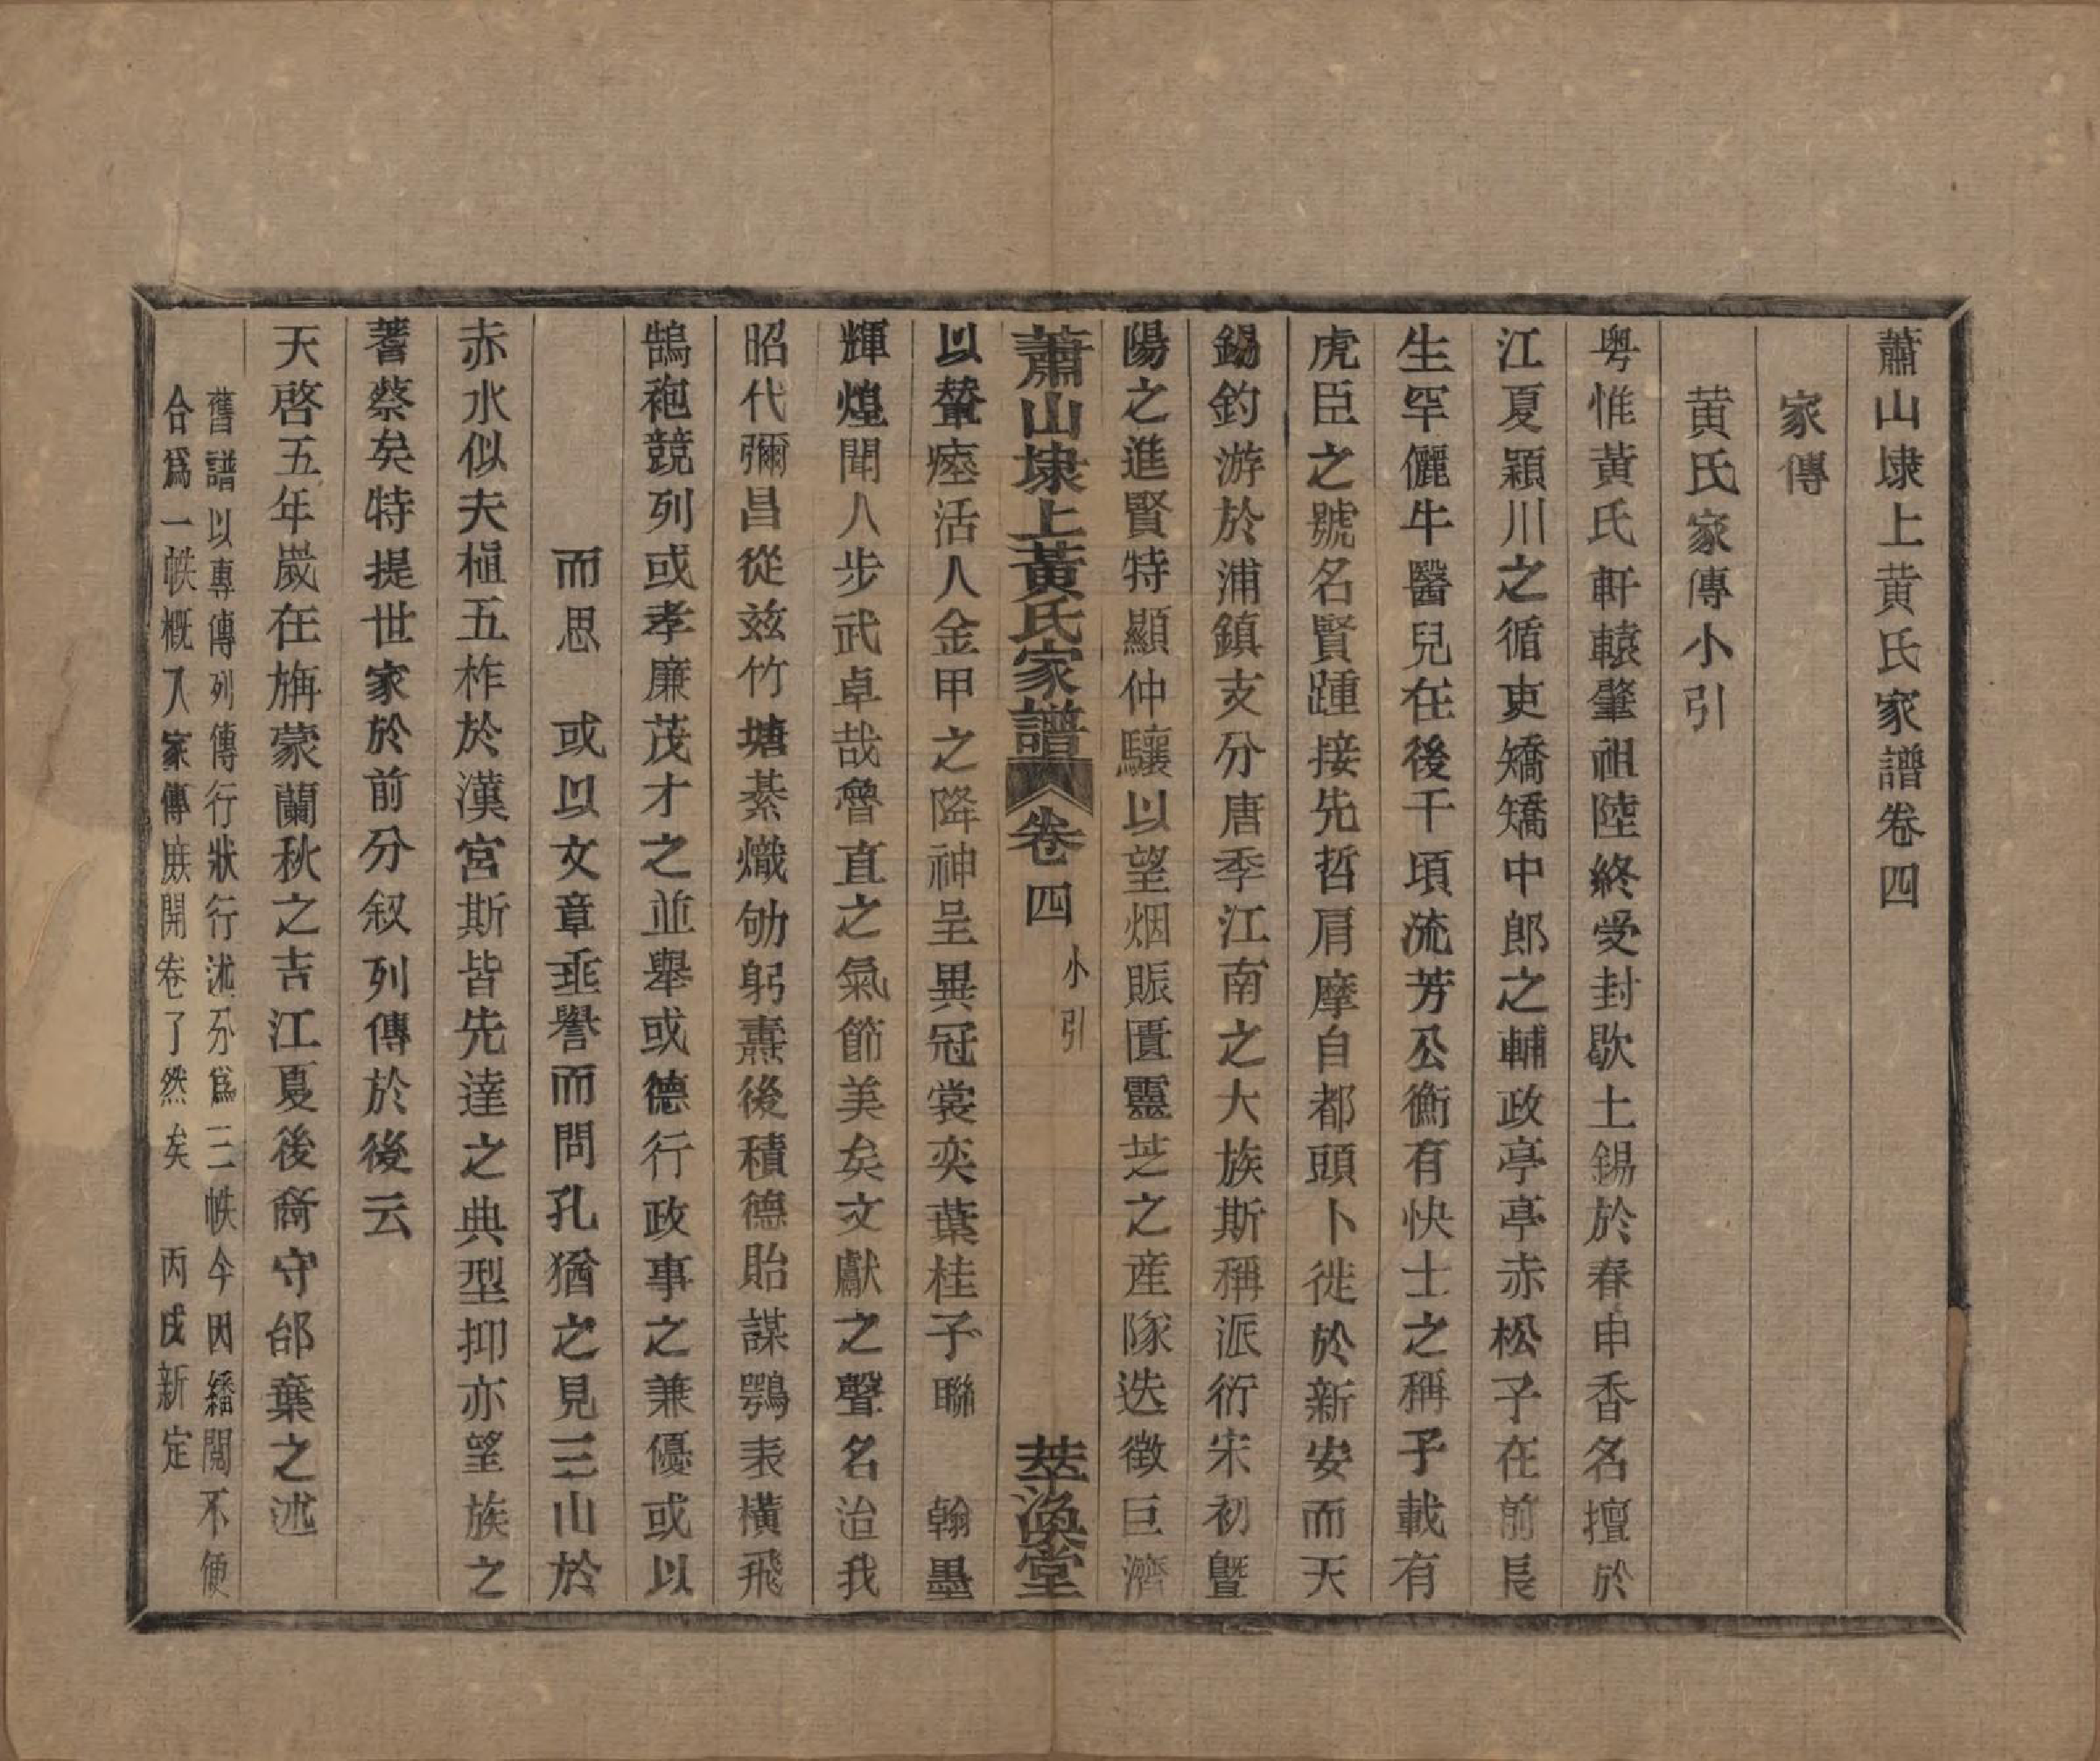 蕭山埭上黄氏家譜卷四
家傳
黄氏家傳小引
粤惟黃氏軒轅肇祖陸終受封歇土錫於春申香名擅於
江夏穎川之循吏矯矯中郎之輔政亭亭赤松子在前長
生罕儷牛醫兒在後千頃流芳公衡有快士之稱予載有
虎臣之號名賢踵接先哲肩摩自都頭卜徙於新安而天
錫釣游於浦鎮支分唐季江南之大族斯稱派衍宋初暨
陽之進賢特顯仲驤以望烟賑匱靈芝之産隊迭徵巨濟
蕭山埭上黃氏家譜 卷四 小引 萃渙堂
以輦瘞活人金甲之降神呈異冠裳奕葉桂子聯 翰墨
輝煌聞人步武卓哉魯直之氣節美矣文獻之聲名治我
昭代彌昌從兹竹塘綦熾劬躬燾後積德貽謀鶚表橫飛
鵠袍競列或孝廉茂才之並舉或德行政事之兼優或以
而思 或以文章垂譽而問孔猶之見三山於
赤水似夫植五柞於漢宮斯皆先達之典型抑亦望族之
蓍蔡矣特提世家於前分叙列傳於後云
天啓五年嵗在旃蒙蘭秋之吉江夏後裔守邰棄之述
舊譜以專傳列傳行狀行述分爲三帙今因繙閱不便
合爲一帙概入家傳庶開卷了然矣 丙戌新定